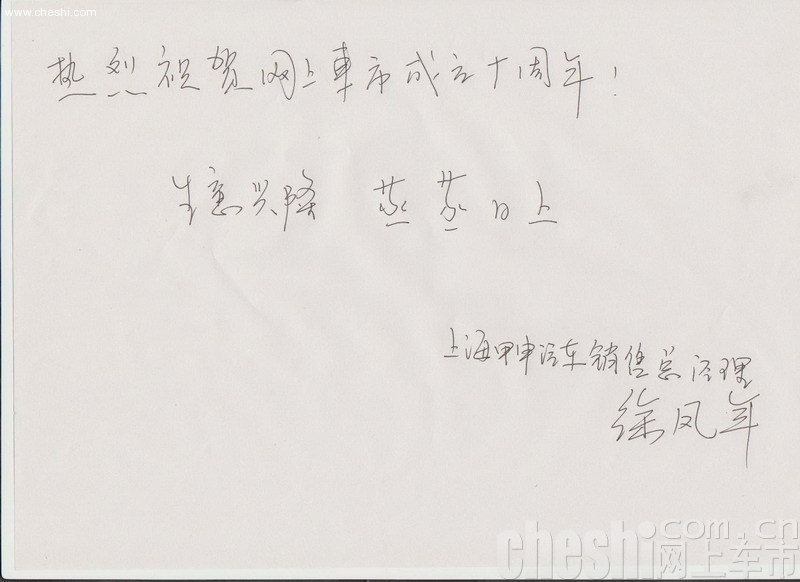 网上车市
www.cheshi.com
热烈祝贺网上車市成立十周年！
生意兴隆 蒸蒸日上
上海甲申汽车销售总经理
徐凤年
cheshi.com.cn
网上车市